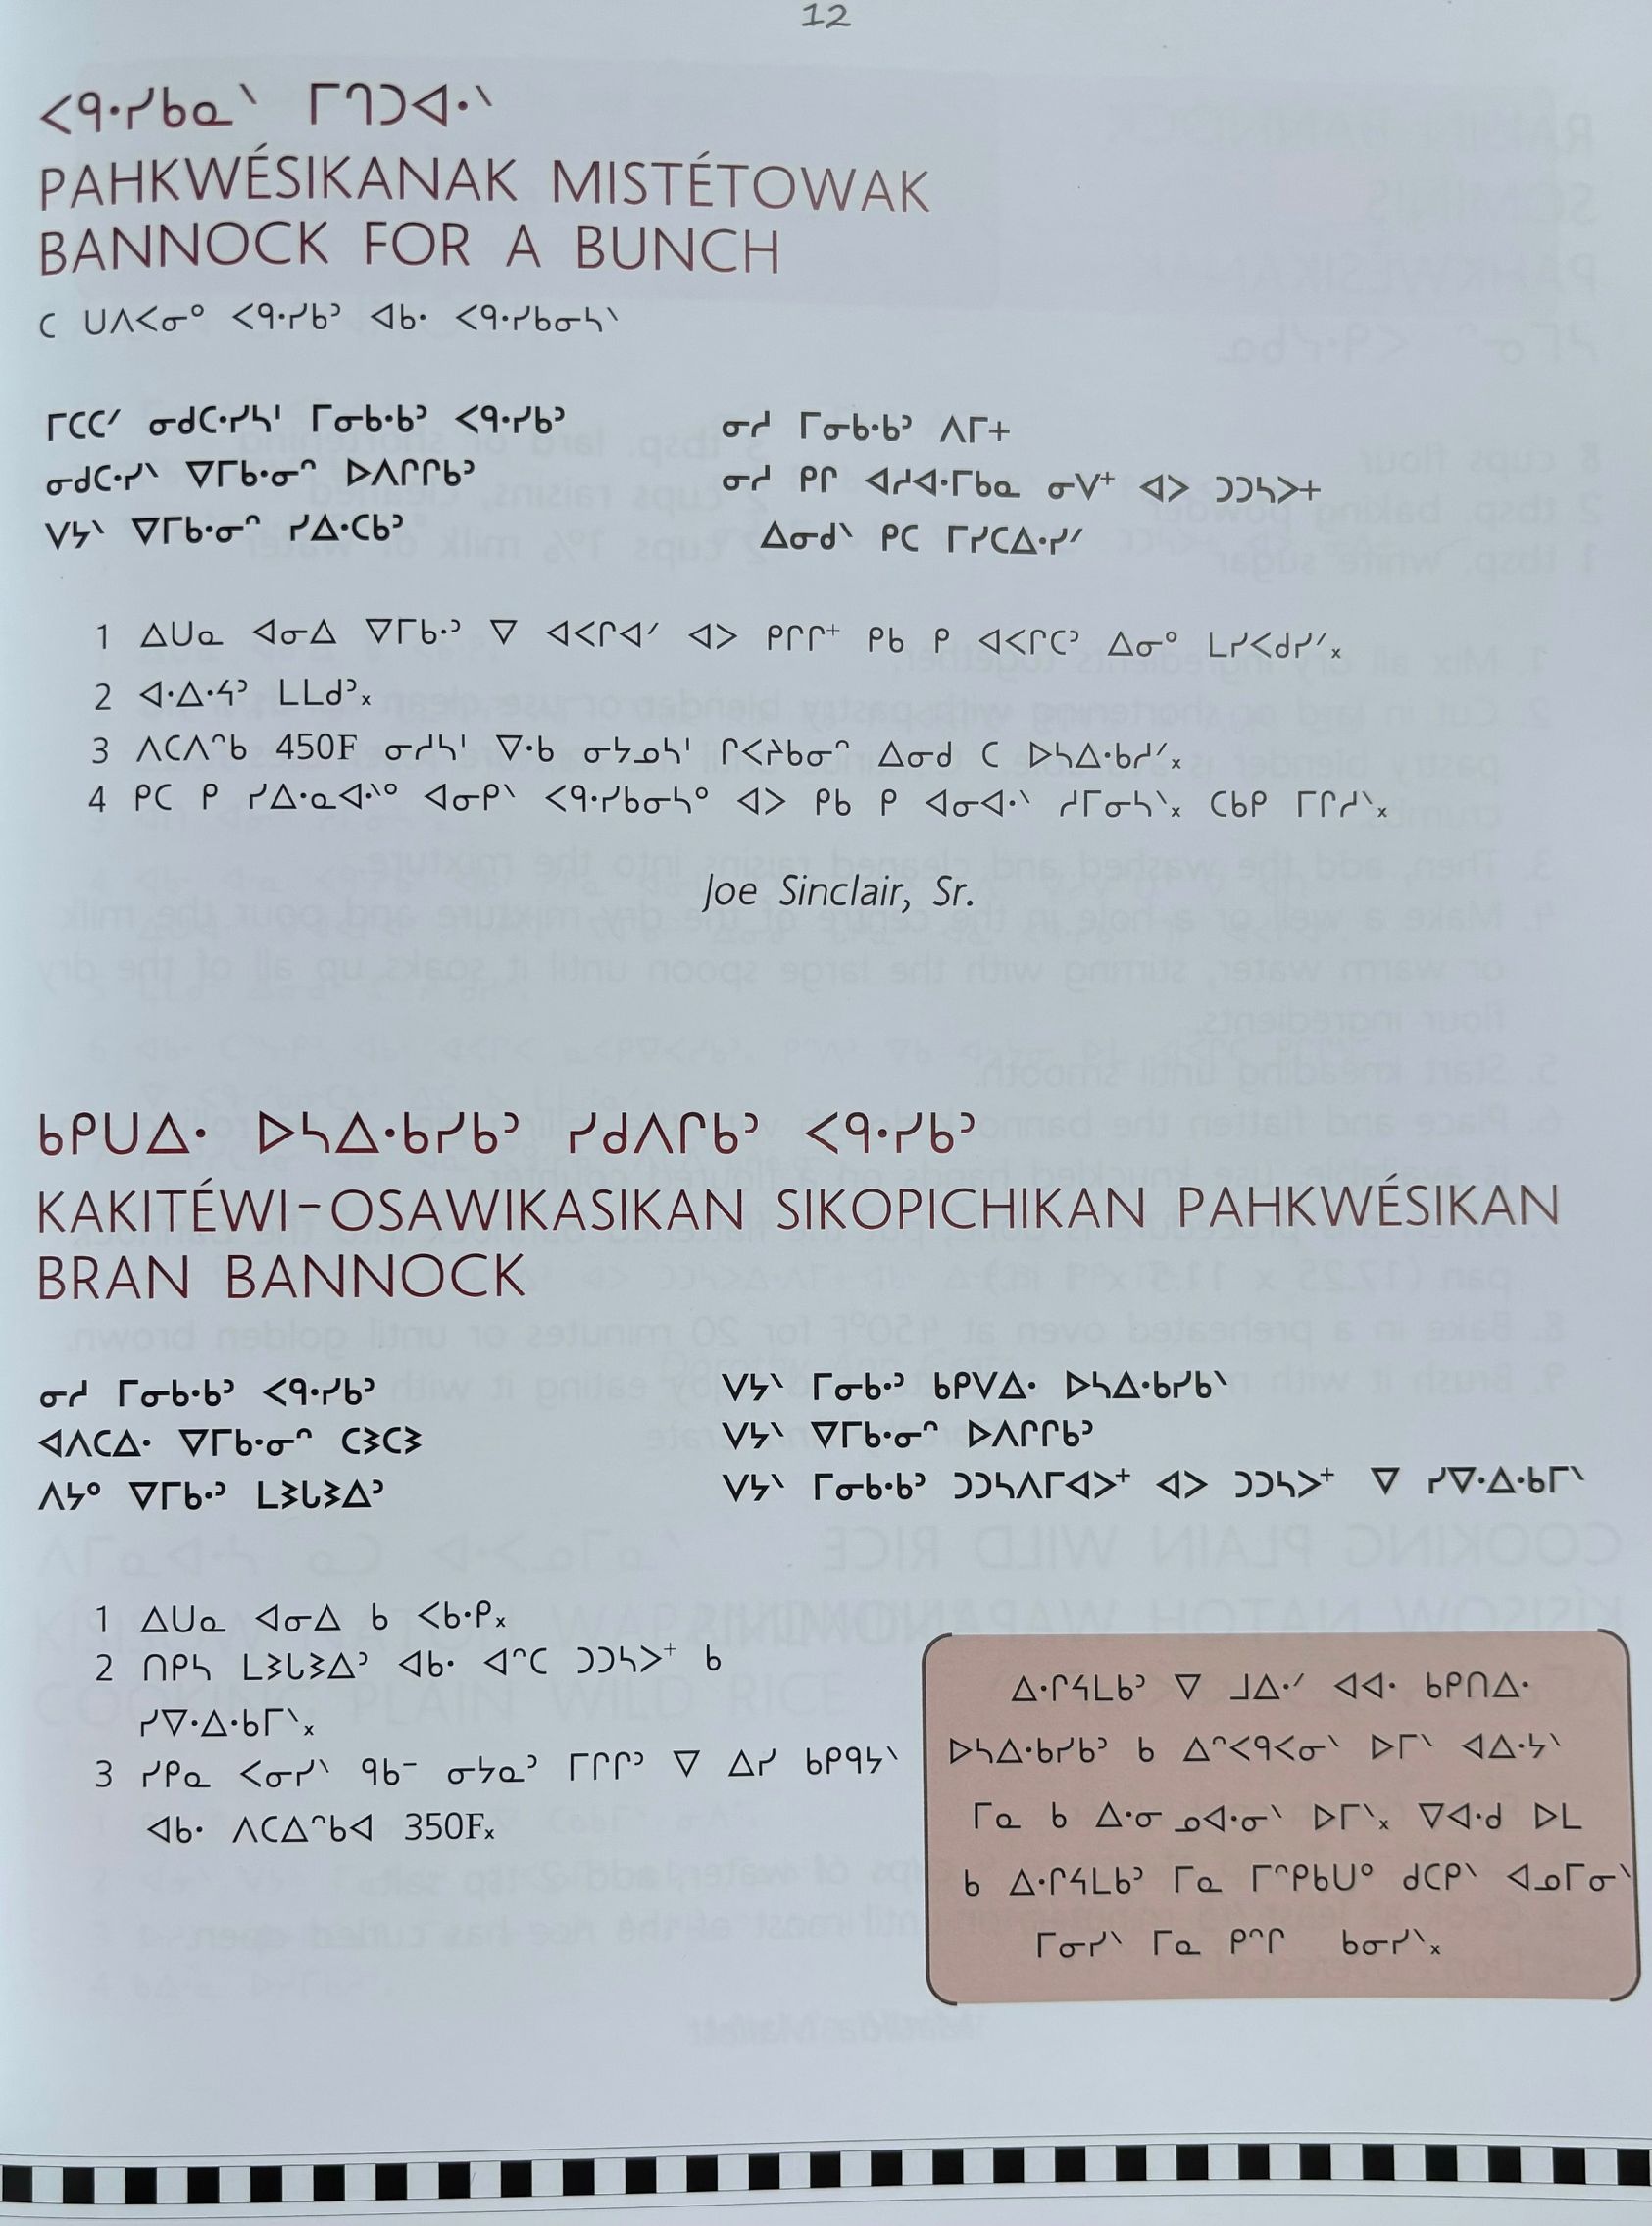 12
ᐸᑫᐧᓯᑲᓇᐠ ᒥᒉᑐᐊᐧᐠ
PAHKWÉSIKANAK MISTÉTOWAK
BANNOCK FOR A BUNCH
ᑕ ᑌᐱᐸᓂᐤ ᐸᑫᐧᓯᑲᐣ ᐊᑲᐧ ᐸᑫᐧᓯᑲᓂᓴᐠ
ᒥᑕᑕᐟ ᓂᑯᑕᐧᓯᓴᑊ ᒥᓂᑲᐧᑲᐣ ᐸᑫᐧᓯᑲᐣ
ᓂᑯᑕᐧᓯᐠ ᐁᒥᑲᐧᓂᐢ ᐅᐱᒋᒋᑲᐣ
ᐯᔭᐠ ᐁᒥᑲᐧᓂᐢ ᓯᐃᐧᑕᑲᐣ
ᓂᓱ ᒥᓂᑲᐧᑲᐣ ᐱᒥ+
ᓂᓱ ᑭᒋ ᐊᓱᐊᐧᒥᑲᓇ ᓂᐯ⁺ ᐊᐳ ᑐᑐᓴᐳ+
ᐃᓂᑯᐠ ᑭᑕ ᒥᓯᑕᐃᐧᓯᐟ
1 ᐃᑌᓇ ᐊᓂᐃ ᐁᒥᑲᐧᐣ ᐁ ᐊᐸᒋᐊᐟ ᐊᐳ ᑭᒋᒋ⁺ ᑭᑲ ᑭ ᐊᐸᒋᑕᐣ ᐃᓂᐤ ᒪᓯᐸᑯᓯᐟ᙮
2 ᐊᐧᐃᐧᔦᐣ ᒪᒪᑯᐣ᙮
3 ᐱᑕᐱᐢᑲ 450F ᓂᓱᓴᑊ ᐁᐧᑲ ᓂᔭᓄᓴᑊ ᒋᐸᐦᐃᑲᓂᐢ ᐃᓂᑯ ᑕ ᐅᓴᐃᐧᑲᓱᐟ᙮
4 ᑭᑕ ᑭ ᓯᐃᐧᓇᐊᐧᐠᐤ ᐊᓂᑭᐠ ᐸᑫᐧᓯᑲᓂᓴᐤ ᐊᐳ ᑭᑲ ᑭ ᐊᓂᐊᐧᐠ ᓱᒥᓂᓴᐠ᙮ ᑕᑲᑭ ᒥᒋᓱᐠ᙮
Joe Sinclair, Sr.
ᑲᑭᑌᐃᐧ ᐅᓴᐃᐧᑲᓯᑲᐣ ᓯᑯᐱᒋᑲᐣ ᐸᑫᐧᓯᑲᐣ
KAKITÉWI-OSAWIKASIKAN SIKOPICHIKAN PAHKWÉSIKAN
BRAN BANNOCK
ᓂᓱ ᒥᓂᑲᐧᑲᐣ ᐸᑫᐧᓯᑲᐣ
ᐊᐱᑕᐃᐧ ᐁᒥᑲᐧᓂᐢ ᑕᕒᑕᕒ
ᐱᔭᐤ ᐁᒥᑲᐧᐣ ᒪᕒᒐᕒᐃᐣ
ᐯᔭᐠ ᒥᓂᑲᐧᐣ ᑲᑭᐯᐃᐧ ᐅᓴᐃᐧᑲᓯᑲᐠ
ᐯᔭᐠ ᐁᒥᑲᐧᓂᐢ ᐅᐱᒋᒋᑲᐣ
ᐯᔭᐠ ᒥᓂᑲᐧᑲᐣ ᑐᑐᓴᐱᒥᐊᐳ⁺ ᐊᐳ ᑐᑐᓴᐳ⁺ ᐁ ᓯᐁᐧᐃᐧᑲᒥᐠ
1 ᐃᑌᓇ ᐊᓂᐃ ᑲ ᐸᑲᐧᑭ᙮
2 ᑎᑭᓴ ᒪᕒᒐᕒᐃᐣ ᐊᑲᐧ ᐊᐢᑕ ᑐᑐᓴᐳ⁺ ᑲ
ᓯᐁᐧᐃᐧᑲᒥᐠ᙮
3 ᓯᑭᓇ ᐸᓂᓯᐠ ᑫᑲᐨ ᓂᔭᓇᐣ ᒥᒋᒋᐣ ᐁ ᐃᓯ ᑲᑭᑫᔭᐠ
ᐊᑲᐧ ᐱᑕᐃᐢᑲᐊ 350F᙮
ᐃᐧᒋᔦᒪᑲᐣ ᐁ ᒧᐃᐧᐟ ᐊᐊᐧ ᑲᑭᑎᐃᐧ
ᐅᓴᐃᐧᑲᓯᑲᐣ ᑲ ᐃᐢᐸᑫᐸᓂᐠ ᐅᒥᐠ ᐊᐃᐧᔭᐠ
ᒥᓇ ᑲ ᐃᐧᓂ ᓄᐊᐧᓂᐠ ᐅᒥᐠ᙮ ᐁᐊᐧᑯ ᐅᒪ
ᑲ ᐃᐧᒋᔦᒪᑲᐣ ᒥᓇ ᒥᐢᑭᑲᑌᐤ ᑯᑕᑭᐠ ᐊᓄᒥᓂᐠ
ᒥᓂᓯᐠ ᒥᓇ ᑭᐢᒋ ᑲᓂᓯᐠ᙮